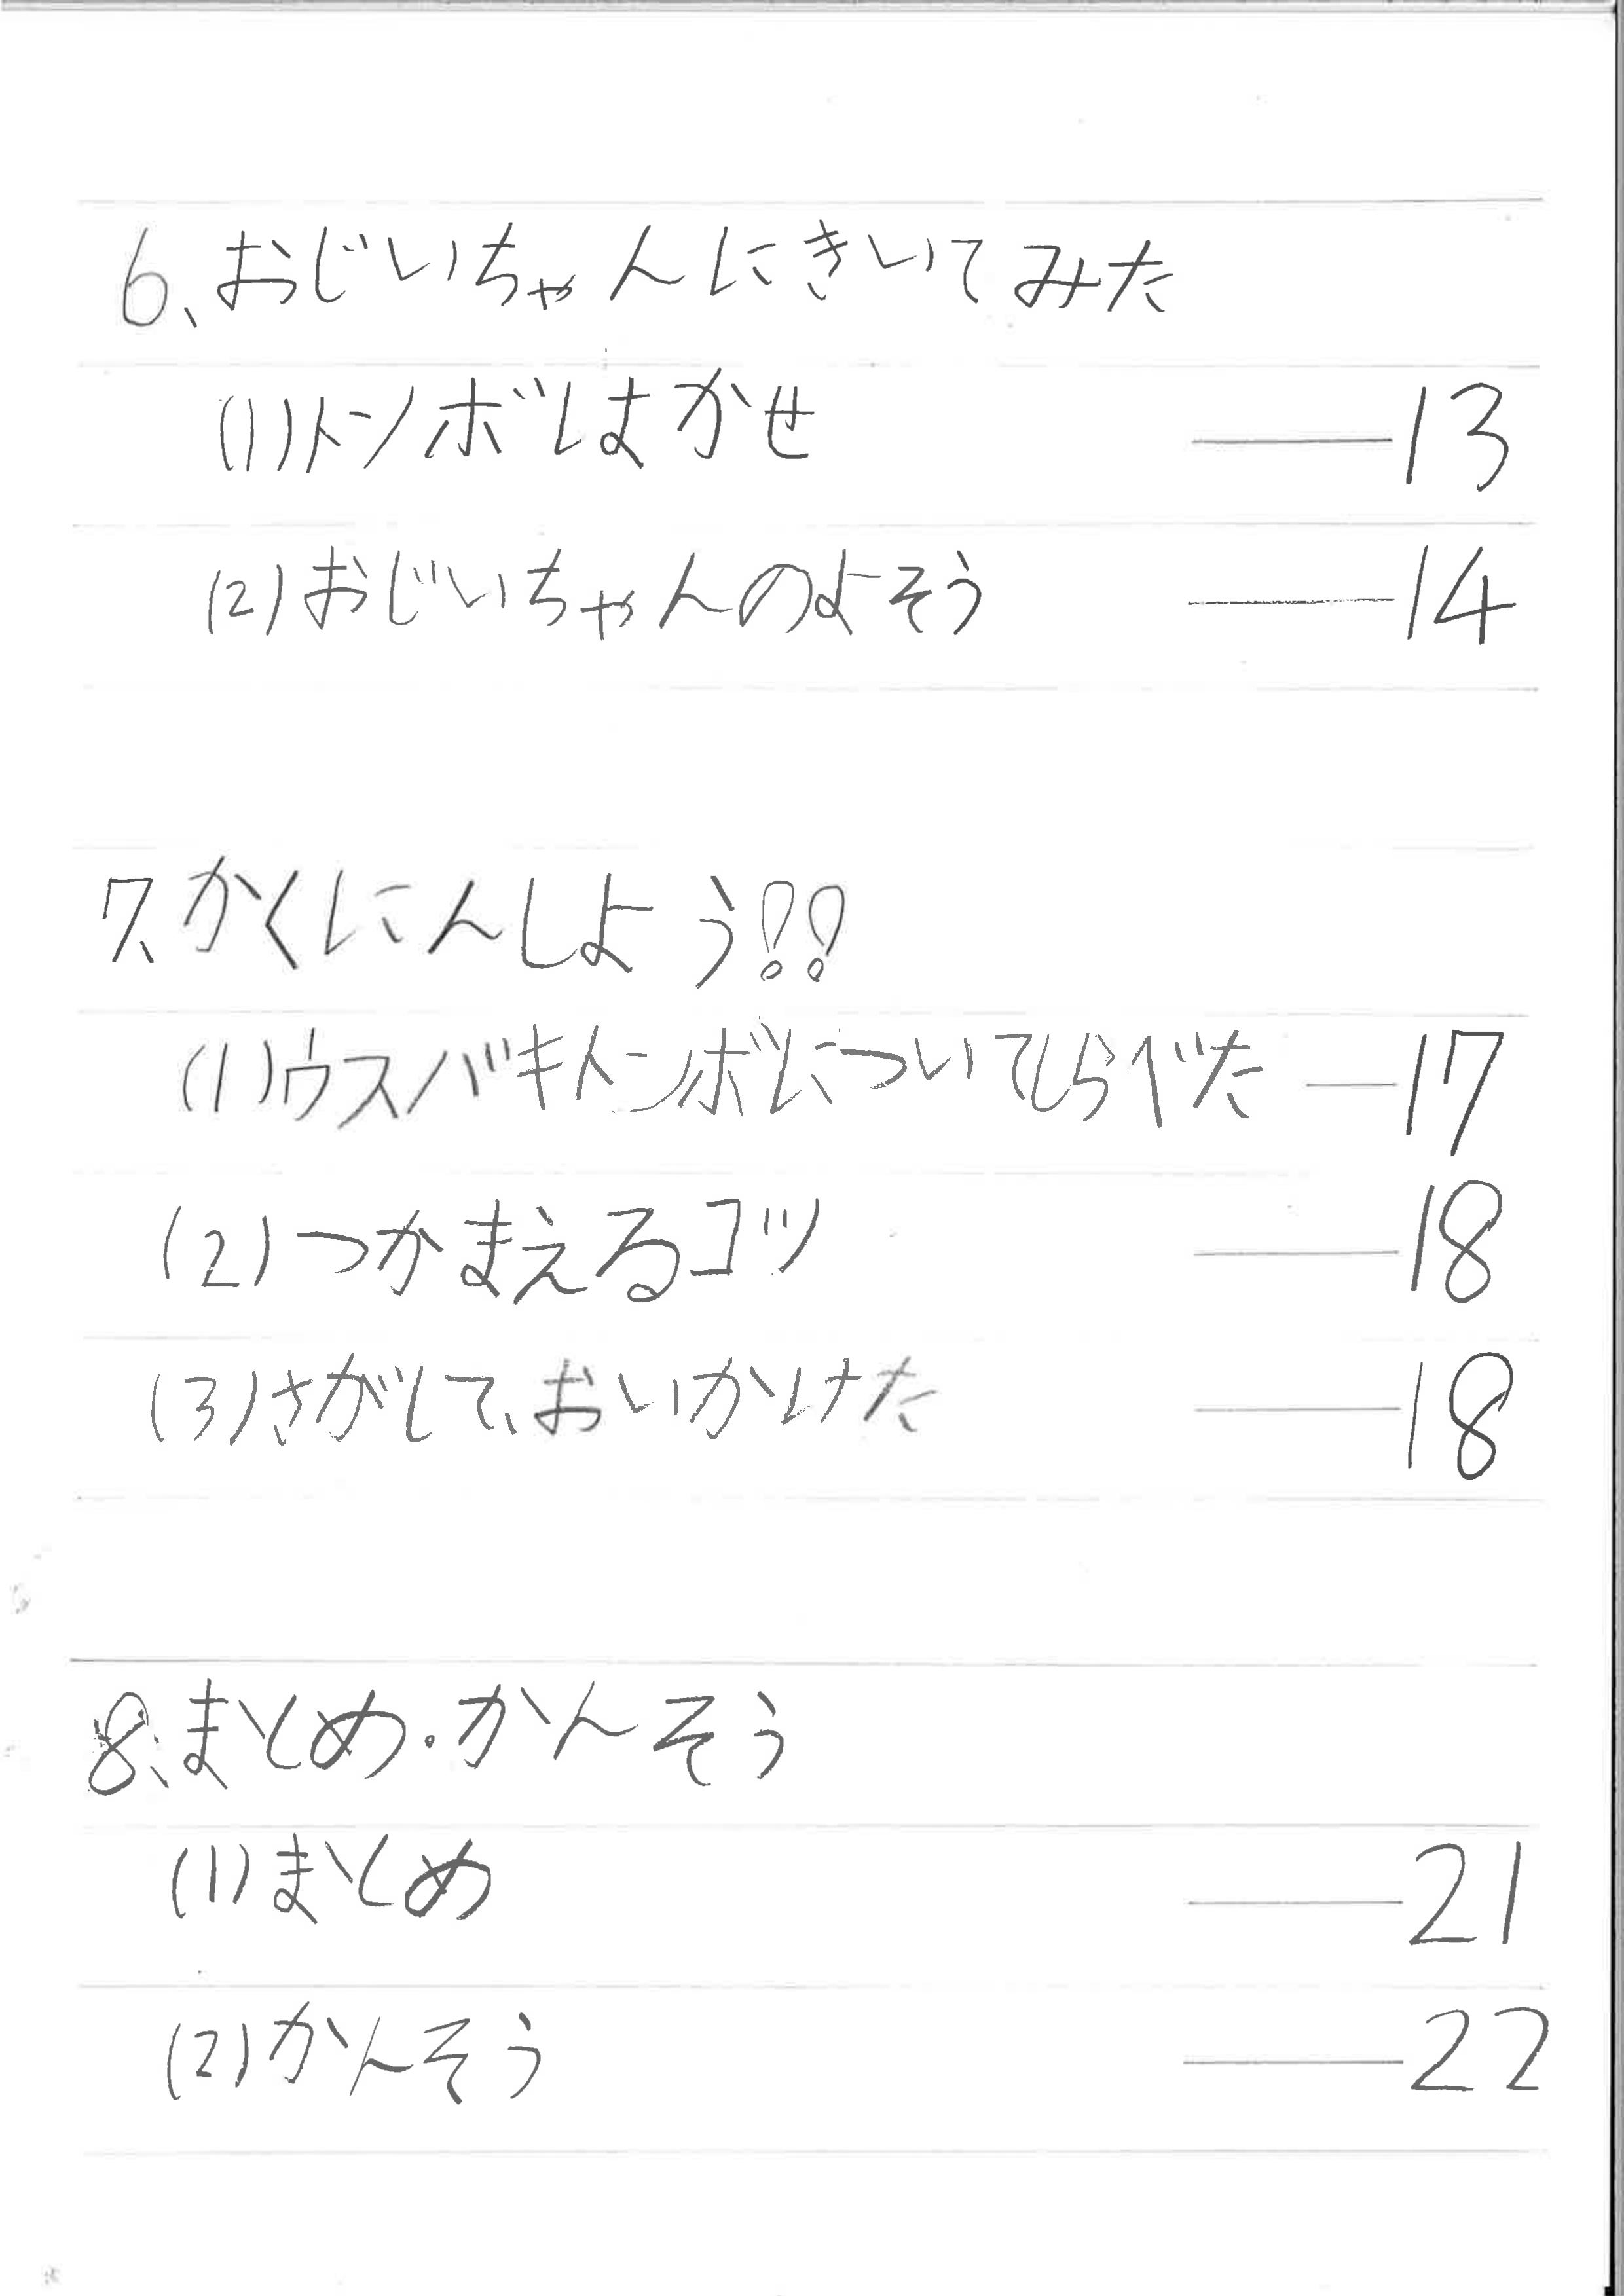 6、おじいちゃんにきいてみた
(1)トンボはかせ ——13
(2)おじいちゃんのよそう ——14
7、かくにんしよう!!
(1)ウスバキトンボについてしらべた —17
(2)つかまえるコツ ——18
(3)さがして、おいかけた ——18
8、まとめ・かんそう
(1)まとめ ——21
(2)かんそう ——22